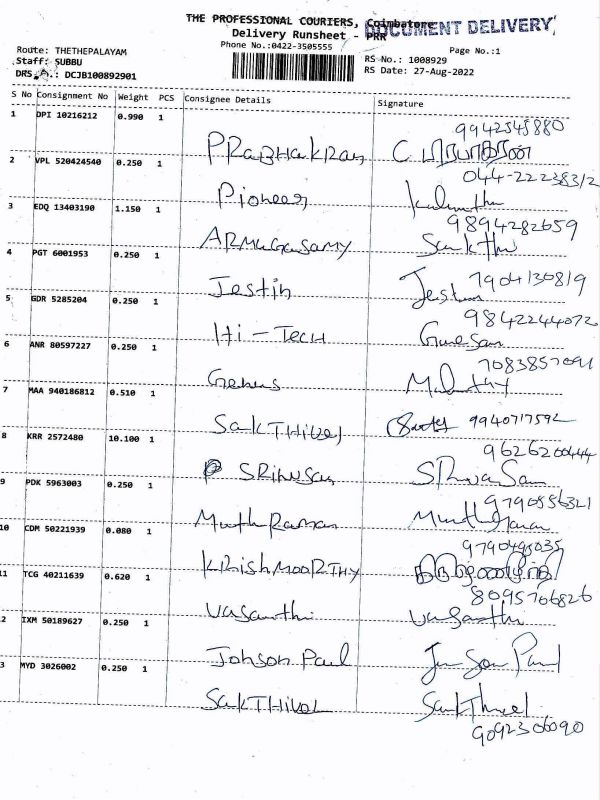 THE PROFESSIONAL COURIERS, Coimbatore
DOCUMENT DELIVERY
Delivery Runsheet - PRR
Phone No.:0422-3505555
Page No.:1
Route: THETHEPALAYAM
Staff: SUBBU
RS No.: 1008929
DRS No.: DCJB100892901
RS Date: 27-Aug-2022
S No Consignment No Weight PCS Consignee Details Signature
1 DPI 10216212 0.990 1
9942545880
PRaBHakRan
2 VPL 520424540 0.250 1
044-22238312
Pioneer
3 EDQ 13403190 1.150 1
9894282659
ARMuGaSamy Sakthi
4 PGT 6001953 0.250 1
7904130819
Jestin Jestin
5 GDR 5285204 0.250 1
9842244072
Hi-Tech Ganesan
6 ANR 80597227 0.250 1
7083857091
7 MAA 940186812 0.510 1
SakTHivel 9940717592
8 KRR 2572480 10.100 1
9626200444
P SRinusan
9 PDK 5963003 0.250 1
9790556321
MuthRaman
10 CDM 50221939 0.080 1
9790495035
KRishMOORTHY
11 TCG 40211639 0.620 1
8095706826
Vasanthi Vasanthi
12 IXM 50189627 0.250 1
Johson Paul
13 MYD 3026002 0.250 1
SakTHivel SakThivel
9092306090